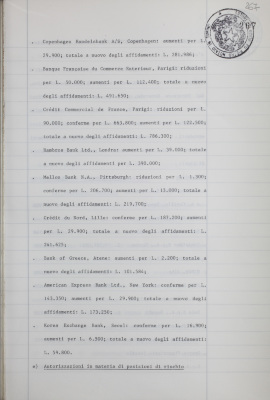 . Copenhagen Handelsbank A/S, Copenhagen: aumenti per L.
29.900; totale a nuovo degli affidamenti: L. 381.986;
. Banque Française du Commerce Exterieur, Parigi: riduzioni
per L. 50.000; aumenti per L. 112.400; totale a nuovo
degli affidamenti: L. 491.650;
. Crédit Commercial de France, Parigi: riduzioni per L.
90.000; conferme per L. 663.800; aumenti per L. 122.500;
totale a nuovo degli affidamenti: L. 786.300;
. Sumitomo Bank Ltd., Londra: aumenti per L. 59.000; totale
a nuovo degli affidamenti: L. 390.000;
. Mellon Bank N.A., Pittsburgh: riduzioni per L. 1.300;
conferme per L. 206.700; aumenti per L. 13.000; totale a
nuovo degli affidamenti: L. 219.700;
. Crédit du Nord, Lille: conferme per L. 107.200; aumenti
per L. 29.900; totale a nuovo degli affidamenti: L.
341.615;
. Bank of Greece, Atene: aumenti per L. 2.200; totale a
nuovo degli affidamenti: L. 301.586;
. American Express Bank Ltd., New York: conferme per L.
143.350; aumenti per L. 29.965; totale a nuovo degli
affidamenti: L. 173.250;
. Korea Exchange Bank, Seoul: conferme per L. 16.900;
aumenti per L. 6.500; totale a nuovo degli affidamenti:
L. 54.600.
e) Autorizzazioni in materia di posizioni di rischio